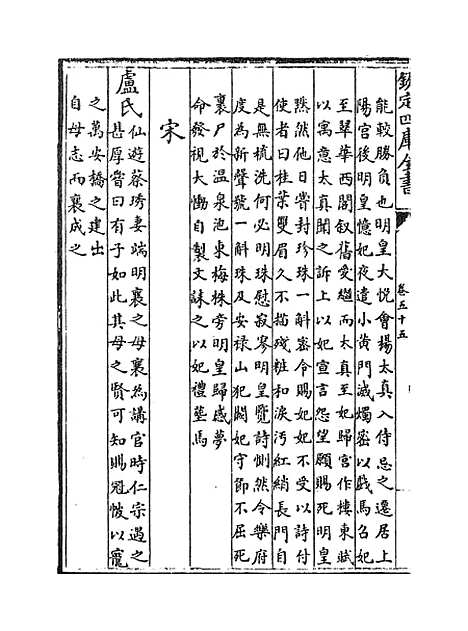 欽定四庫全書
卷五十五
能較勝負也明皇大悅會楊太真入侍忌之遷居上
陽宮後明皇憶妃夜遣小黃門滅燭密以戲馬召妃
至翠華西閣叙舊愛繼而太真至妃歸宮作樓東賦
以寓意太真聞之訴上以妃宣言怨望願賜死明皇
黙然他日嘗封珍珠一斛密令賜妃妃不受以詩付
使者曰桂葉雙眉久不描殘粧和淚汚紅綃長門自
是無梳洗何必明珠慰寂寥明皇覽詩惻然令樂府
度為新聲號一斛珠及安禄山犯闕妃守節不屈死
裹尸於温泉池東梅株旁明皇歸感夢
命發視大慟自製文誄之以妃禮塟焉
宋
盧氏仙遊蔡琇妻端明襄之母襄為講官時仁宗遇之
甚厚嘗曰有子如此其母之賢可知賜冠帔以寵
之萬安橋之建出
自母志而襄成之